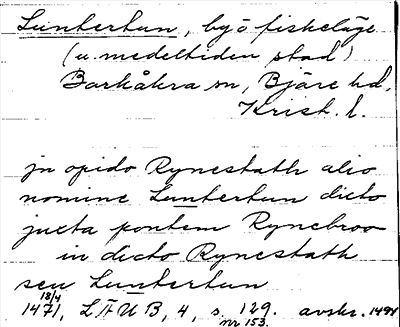 Luntertun, by o fiskeläge
(u. medeltiden stad)
Barkåkra sn, Bjäre hd,
Krist. l.
jn opido Rynestath alio
nomine Luntertun dicto
juxta pontem Rynebroo
in dicto Rynestath
seu Luntertun
18/4
1471, LÄUB, 4, s. 129. avskr. 1494
nr 153.